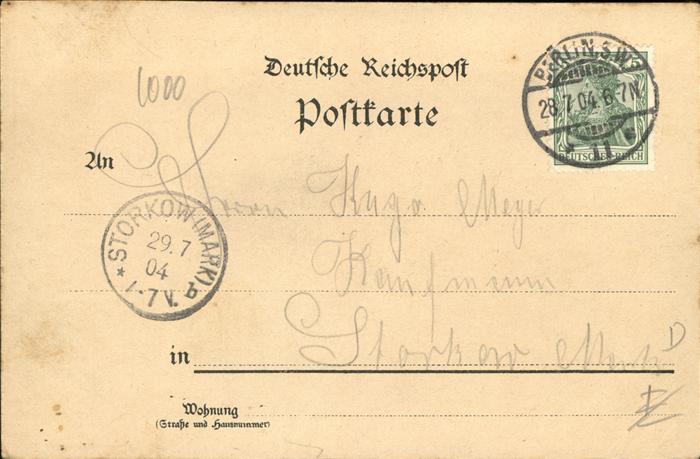 Deutsche Reichspost
Postkarte
1000
BERLIN S.W.
28.7.04.6-7N.
* 11
DEUTSCHES REICH
An
Herrn Hugo Meyer
STORKOW (MARK)
* 29.7
04
1-7V.
Kaufmann
in Storkow Mark
D
Wohnung
(Straße und Hausnummer)